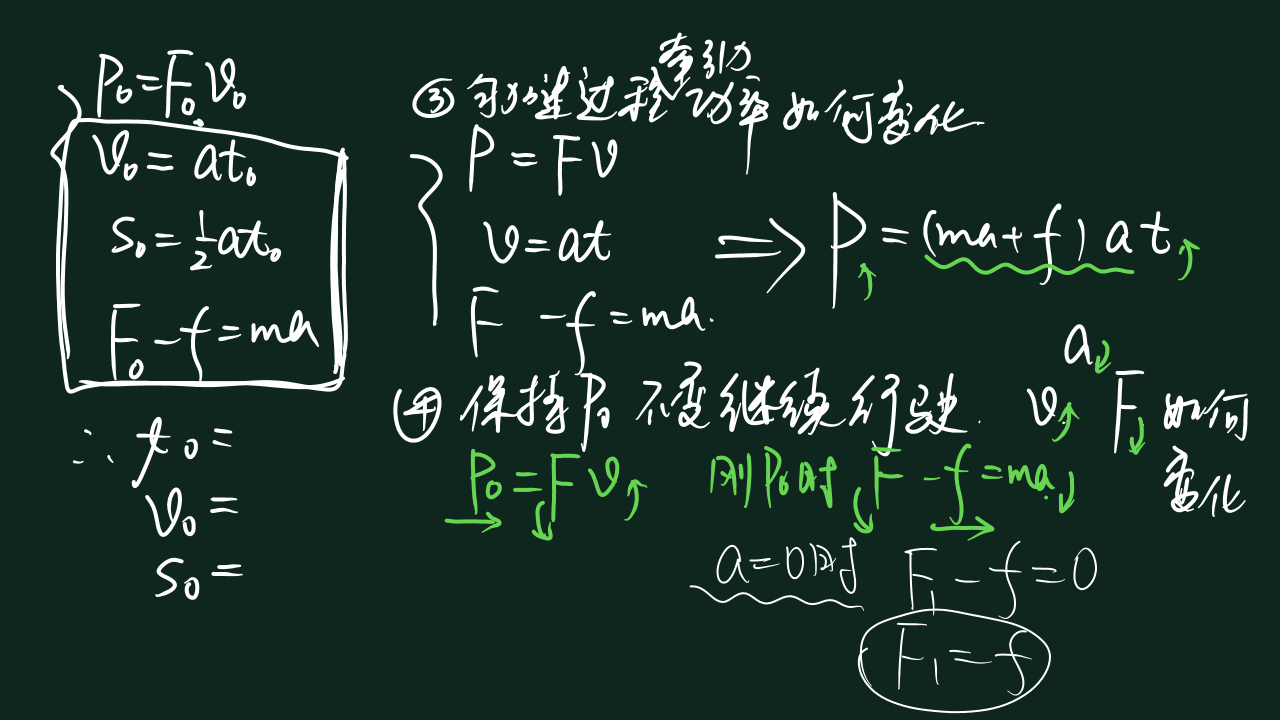 P₀=F₀v₀
v₀=at₀
s₀=½at₀
F₀-f=ma
∴ t₀=
v₀=
s₀=
牵引力
③ 匀加速过程功率如何变化
P=Fv
v=at
F-f=ma.
⇒ P↑=(ma+f)at↑
④ 保持P₀不变继续行驶. v↑ a↓ F↓ 如何变化
P₀=F↓v↑ 刚P₀时 F↓-f=ma↓
a=0时 F₁-f=0
F₁=f